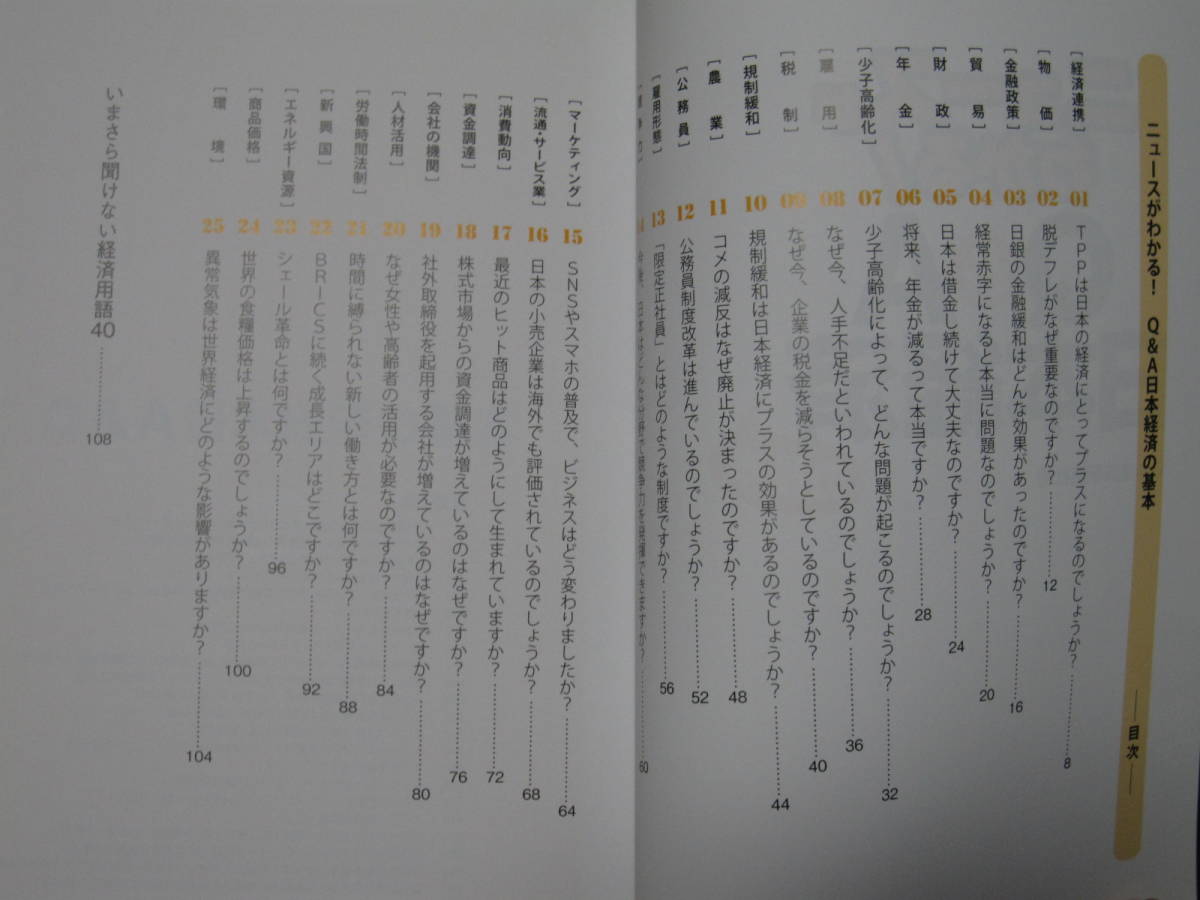 ニュースがわかる！　Q&A日本経済の基本
――目次――
［経済連携］ 01 TPPは日本の経済にとってプラスになるのでしょうか？…………8
［物価］ 02 脱デフレがなぜ重要なのですか？…………12
［金融政策］ 03 日銀の金融緩和はどんな効果があったのですか？…………16
［貿易］ 04 経常赤字になると本当に問題なのでしょうか？…………20
［財政］ 05 日本は借金し続けて大丈夫なのですか？…………24
［年金］ 06 将来、年金が減るって本当ですか？…………28
［少子高齢化］ 07 少子高齢化によって、どんな問題が起こるのでしょうか？…………32
［雇用］ 08 なぜ今、人手不足だといわれているのでしょうか？…………36
［税制］ 09 なぜ今、企業の税金を減らそうとしているのですか？…………40
［規制緩和］ 10 規制緩和は日本経済にプラスの効果があるのでしょうか？…………44
［農業］ 11 コメの減反はなぜ廃止が決まったのですか？…………48
［公務員］ 12 公務員制度改革は進んでいるのでしょうか？…………52
［雇用形態］ 13 「限定正社員」とはどのような制度ですか？…………56
60
［マーケティング］ 15 SNSやスマホの普及で、ビジネスはどう変わりましたか？…………64
［流通・サービス業］ 16 日本の小売企業は海外でも評価されているのでしょうか？…………68
［消費動向］ 17 最近のヒット商品はどのようにして生まれていますか？…………72
［資金調達］ 18 株式市場からの資金調達が増えているのはなぜですか？…………76
［会社の機関］ 19 社外取締役を起用する会社が増えているのはなぜですか？…………80
［人材活用］ 20 なぜ女性や高齢者の活用が必要なのですか？…………84
［労働時間法制］ 21 時間に縛られない新しい働き方とは何ですか？…………88
［新興国］ 22 BRICSに続く成長エリアはどこですか？…………92
［エネルギー資源］ 23 シェール革命とは何ですか？…………96
［商品価格］ 24 世界の食糧価格は上昇するのでしょうか？…………100
［環境］ 25 異常気象は世界経済にどのような影響がありますか？…………104
いまさら聞けない経済用語40…………108